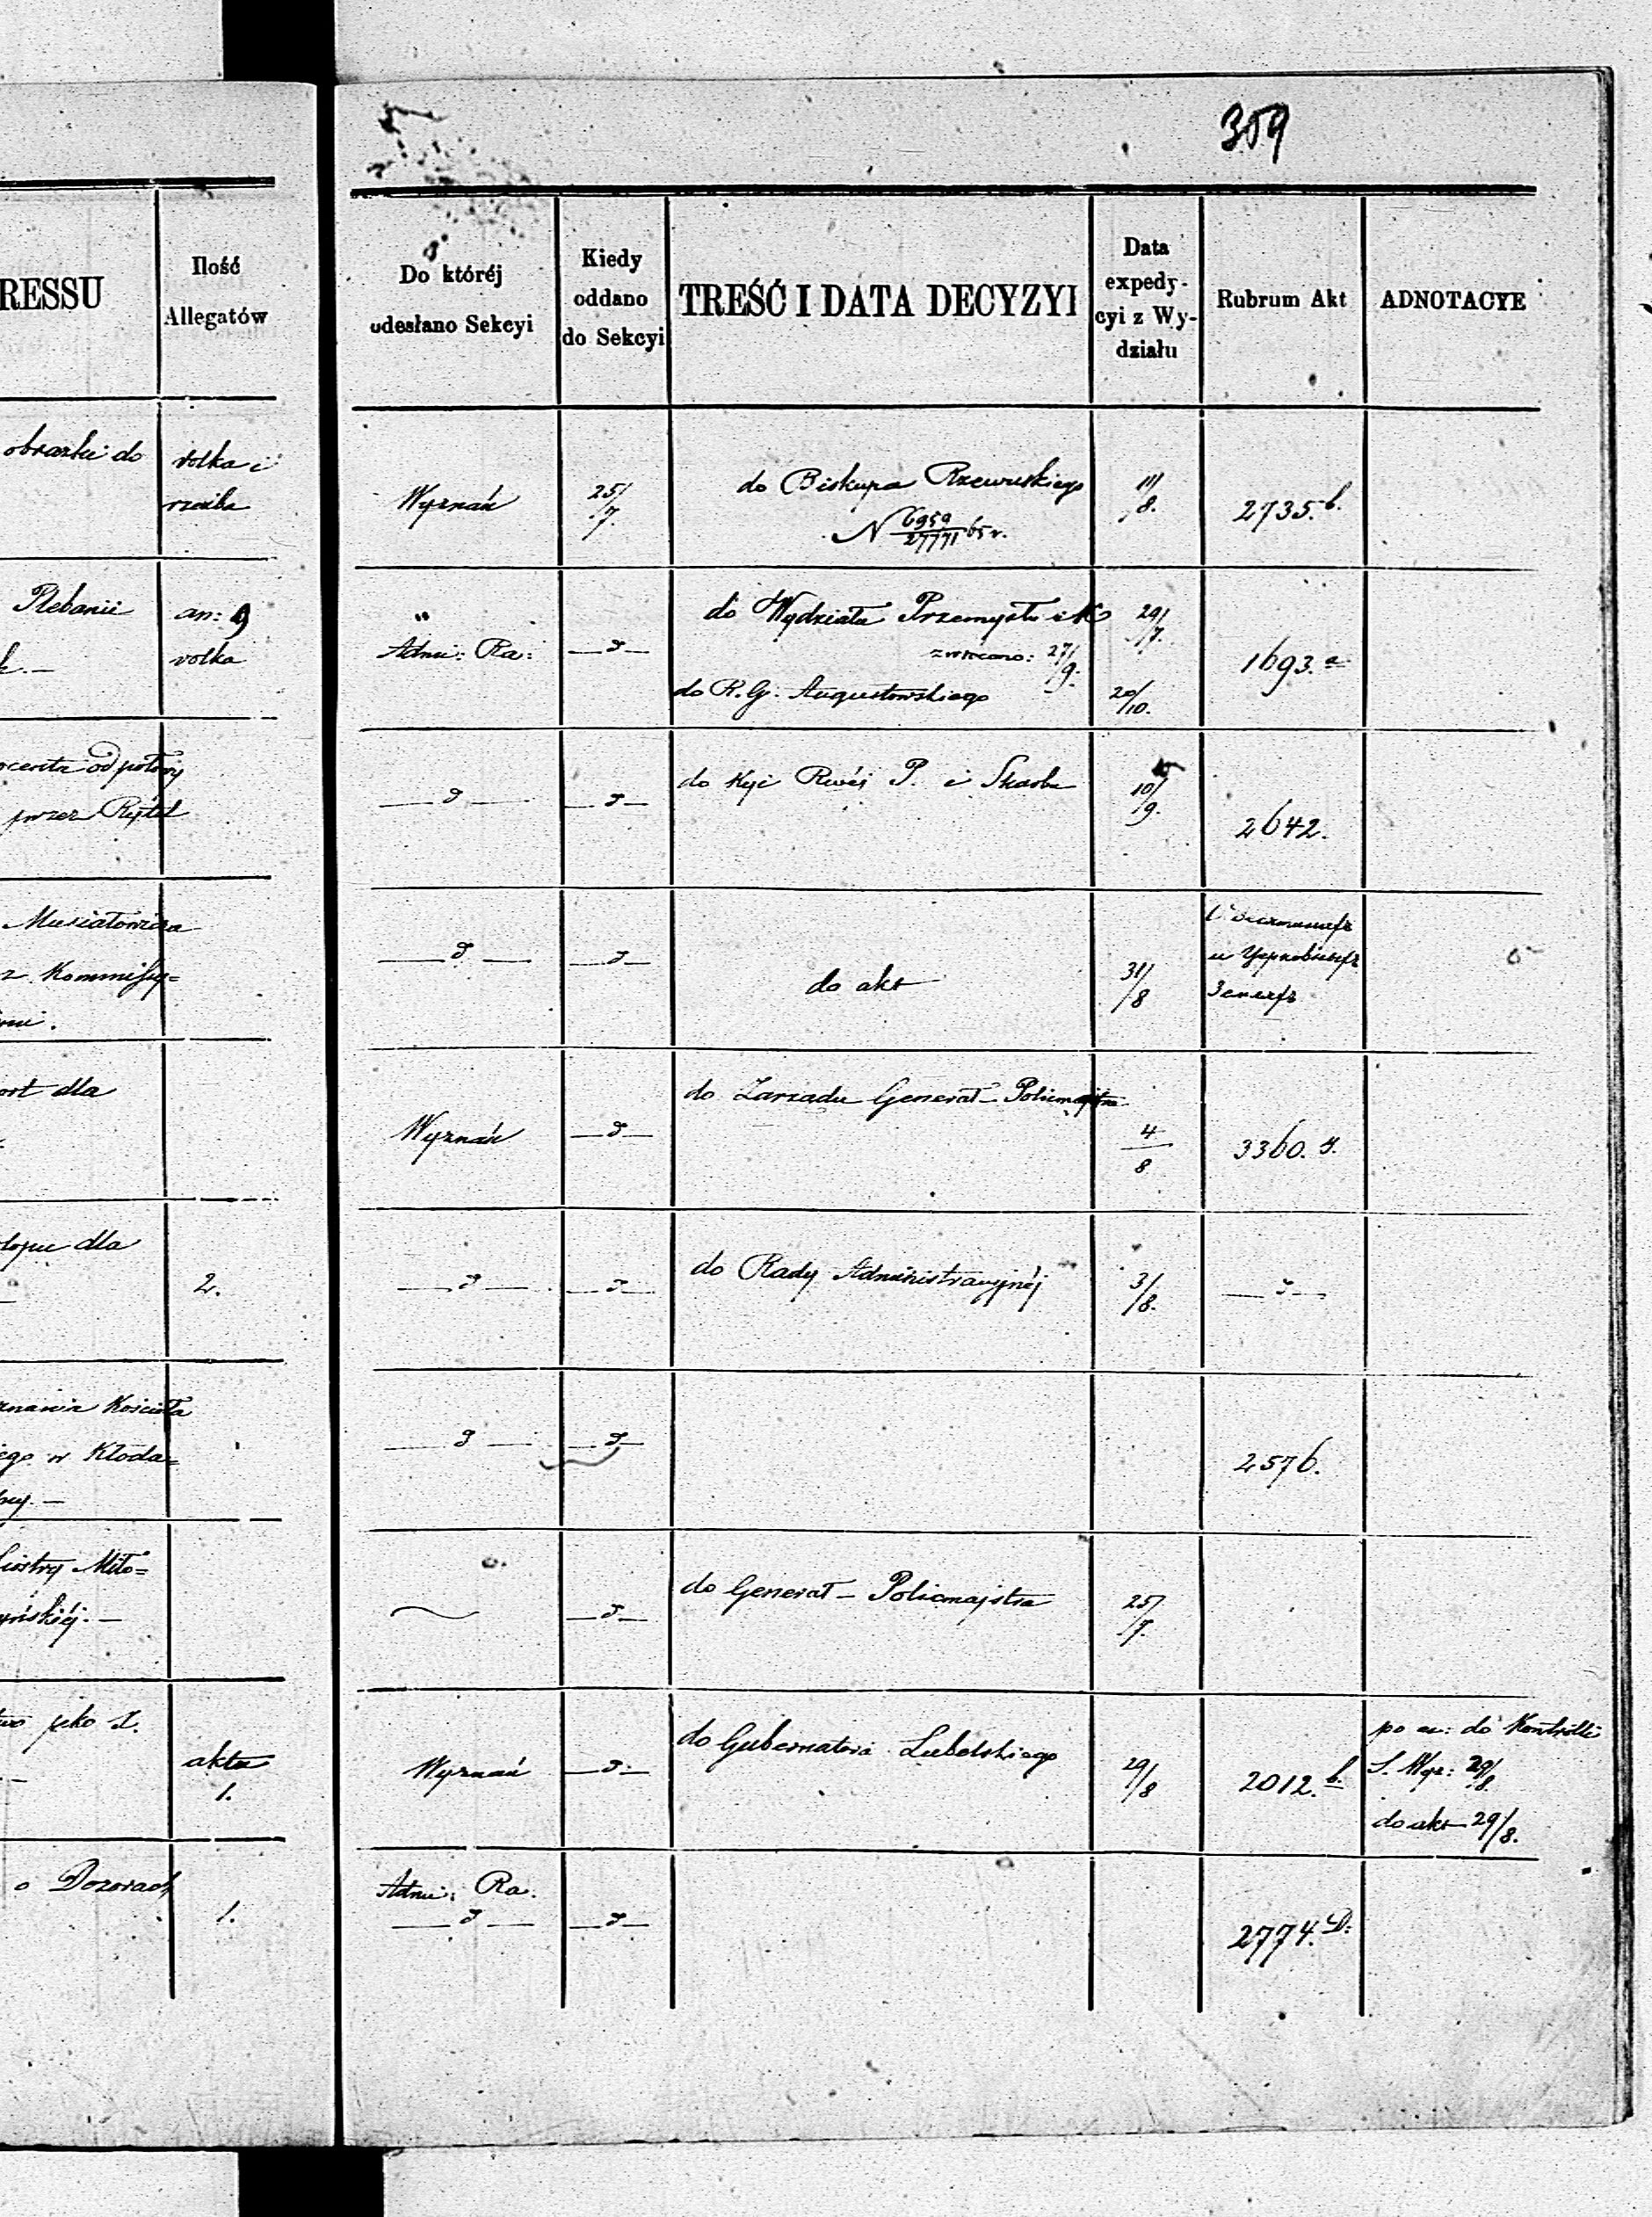 309
RESSU
Ilość
Allegatów
Do któréj
odesłano Sekcyi
Kiedy
oddano
do Sekcyi
TREŚĆ I DATA DECYZYI
Data
expedy-
cyi z Wy-
działu
Rubrum Akt
ADNOTACYE
obrazki do
Wyznań
25/7.
do Biskupa Rzewuskiego
N 6959/27771 65 r.
11/8.
2735. b.
Plebanii
an: 9
"
Admi: Ra:
— d —
do Wydziału Przemysłu i K
zwrócono: 27/9.
do R. G. Augustowskiego
29/7.
20/10.
1693. a
od połowy
przez
— d —
— d —
do Kyi Rwéj P. i Skarbu
10/9.
2642.
Musiałowicza
z Kommissy=
— d —
— d —
do akt
31/8
ort dla
Wyznań
— d —
do Zarządu Generał-Policmajstra
4/8
3360.
dla
2.
— d —
— d —
do Rady Administracyjnéj
3/8.
— d —
Kościoła
ego w Kłoda=
— d —
— d —
2576.
Siostry Miło=
yńskiéj. —
— d —
do Generał-Policmajstra
25/7.
jako
akta
1.
Wyznań
— d —
do Gubernatora Lubelskiego
29/8
2012. b.
do Kontrolli
S. Wyz: 29/8.
do akt 29/8.
o Dozorach
1.
Admi: Ra.
— d —
— d —
2774. D.